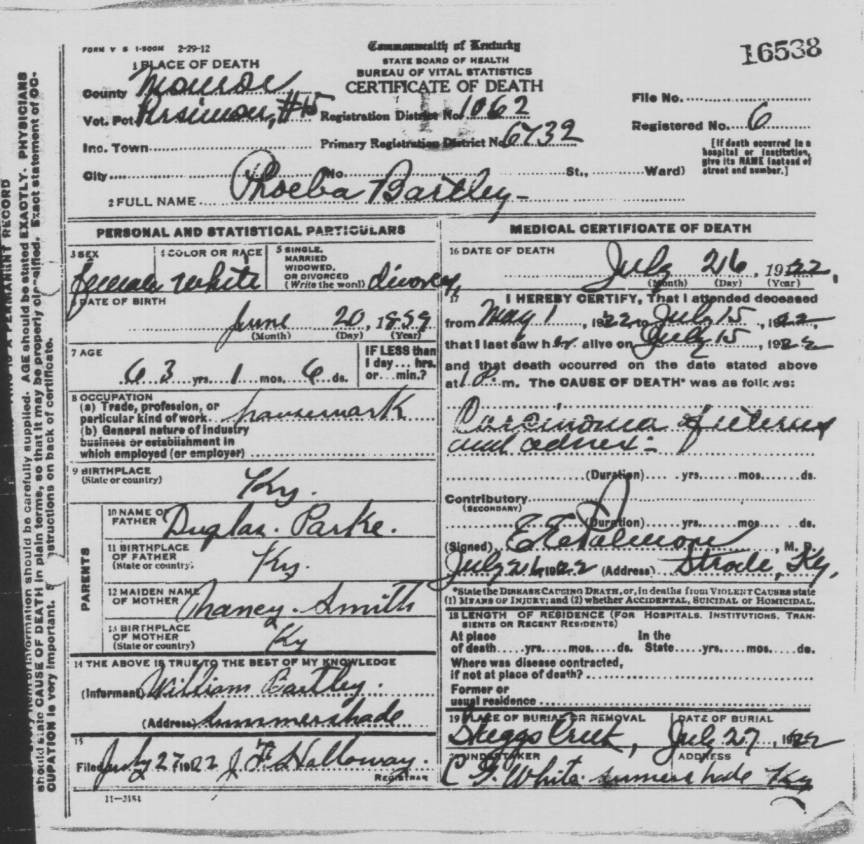 FORM V S 1-500M 2-29-12
Commonwealth of Kentucky
STATE BOARD OF HEALTH
BUREAU OF VITAL STATISTICS
CERTIFICATE OF DEATH
16538
1 PLACE OF DEATH
County Monroe
Vot. Pct. Persimon, #15 Registration District No. 1062
Inc. Town Primary Registration District No. 6732
City No. St., Ward)
File No.
Registered No. 6
[If death occurred in a
hospital or institution,
give its NAME instead of
street and number.]
2 FULL NAME Phoeba Bartley
PERSONAL AND STATISTICAL PARTICULARS
3 SEX
female
4 COLOR OR RACE
white
5 SINGLE,
MARRIED
WIDOWED,
OR DIVORCED
(Write the word)
DATE OF BIRTH
June 20, 1859
(Month) (Day) (Year)
7 AGE
63 yrs. 1 mos. 6 ds.
IF LESS than
1 day... hrs.
or... min.?
8 OCCUPATION
(a) Trade, profession, or
particular kind of work
(b) General nature of industry
business or establishment in
which employed (or employer)
9 BIRTHPLACE
(State or country)
Ky.
PARENTS
10 NAME OF
FATHER Parke.
11 BIRTHPLACE
OF FATHER
(State or country)
Ky.
12 MAIDEN NAME
OF MOTHER Nancy Smith
13 BIRTHPLACE
OF MOTHER
(State or country)
Ky
14 THE ABOVE IS TRUE TO THE BEST OF MY KNOWLEDGE
(Informant) William Bartley.
(Address) Summershade
15
Filed July 27, 1922 J F Holloway.
REGISTRAR
11-3184
MEDICAL CERTIFICATE OF DEATH
16 DATE OF DEATH
July 26, 1922,
(Month) (Day) (Year)
17 I HEREBY CERTIFY, That I attended deceased
from May 1, 1922 to July 15, 1922,
that I last saw her alive on July 15, 1922
and that death occurred on the date stated above
at m. The CAUSE OF DEATH* was as follows:
Carcinoma of uterus
and adnex
(Duration) yrs. mos. ds.
Contributory
(SECONDARY)
(Duration) yrs. mos. ds.
(Signed) E E Palmore, M. D.
July 26, 1922 (Address) Strode, Ky.
*State the DISEASE CAUSING DEATH, or, in deaths from VIOLENT CAUSES state
(1) MEANS OF INJURY; and (2) whether ACCIDENTAL, SUICIDAL or HOMICIDAL.
18 LENGTH OF RESIDENCE (FOR HOSPITALS, INSTITUTIONS, TRAN-
SIENTS OR RECENT RESIDENTS)
At place In the
of death yrs. mos. ds. State yrs. mos. ds.
Where was disease contracted,
if not at place of death?
Former or
usual residence
19 PLACE OF BURIAL OR REMOVAL DATE OF BURIAL
Skeggs Creek, July 27, 1922
UNDERTAKER ADDRESS
C F. White Ky
information should be carefully supplied. AGE should be stated EXACTLY. PHYSICIANS
should state CAUSE OF DEATH in plain terms, so that it may be properly classified. Exact statement of OC-
CUPATION is very important. instructions on back of certificate.
IS A PERMANENT RECORD